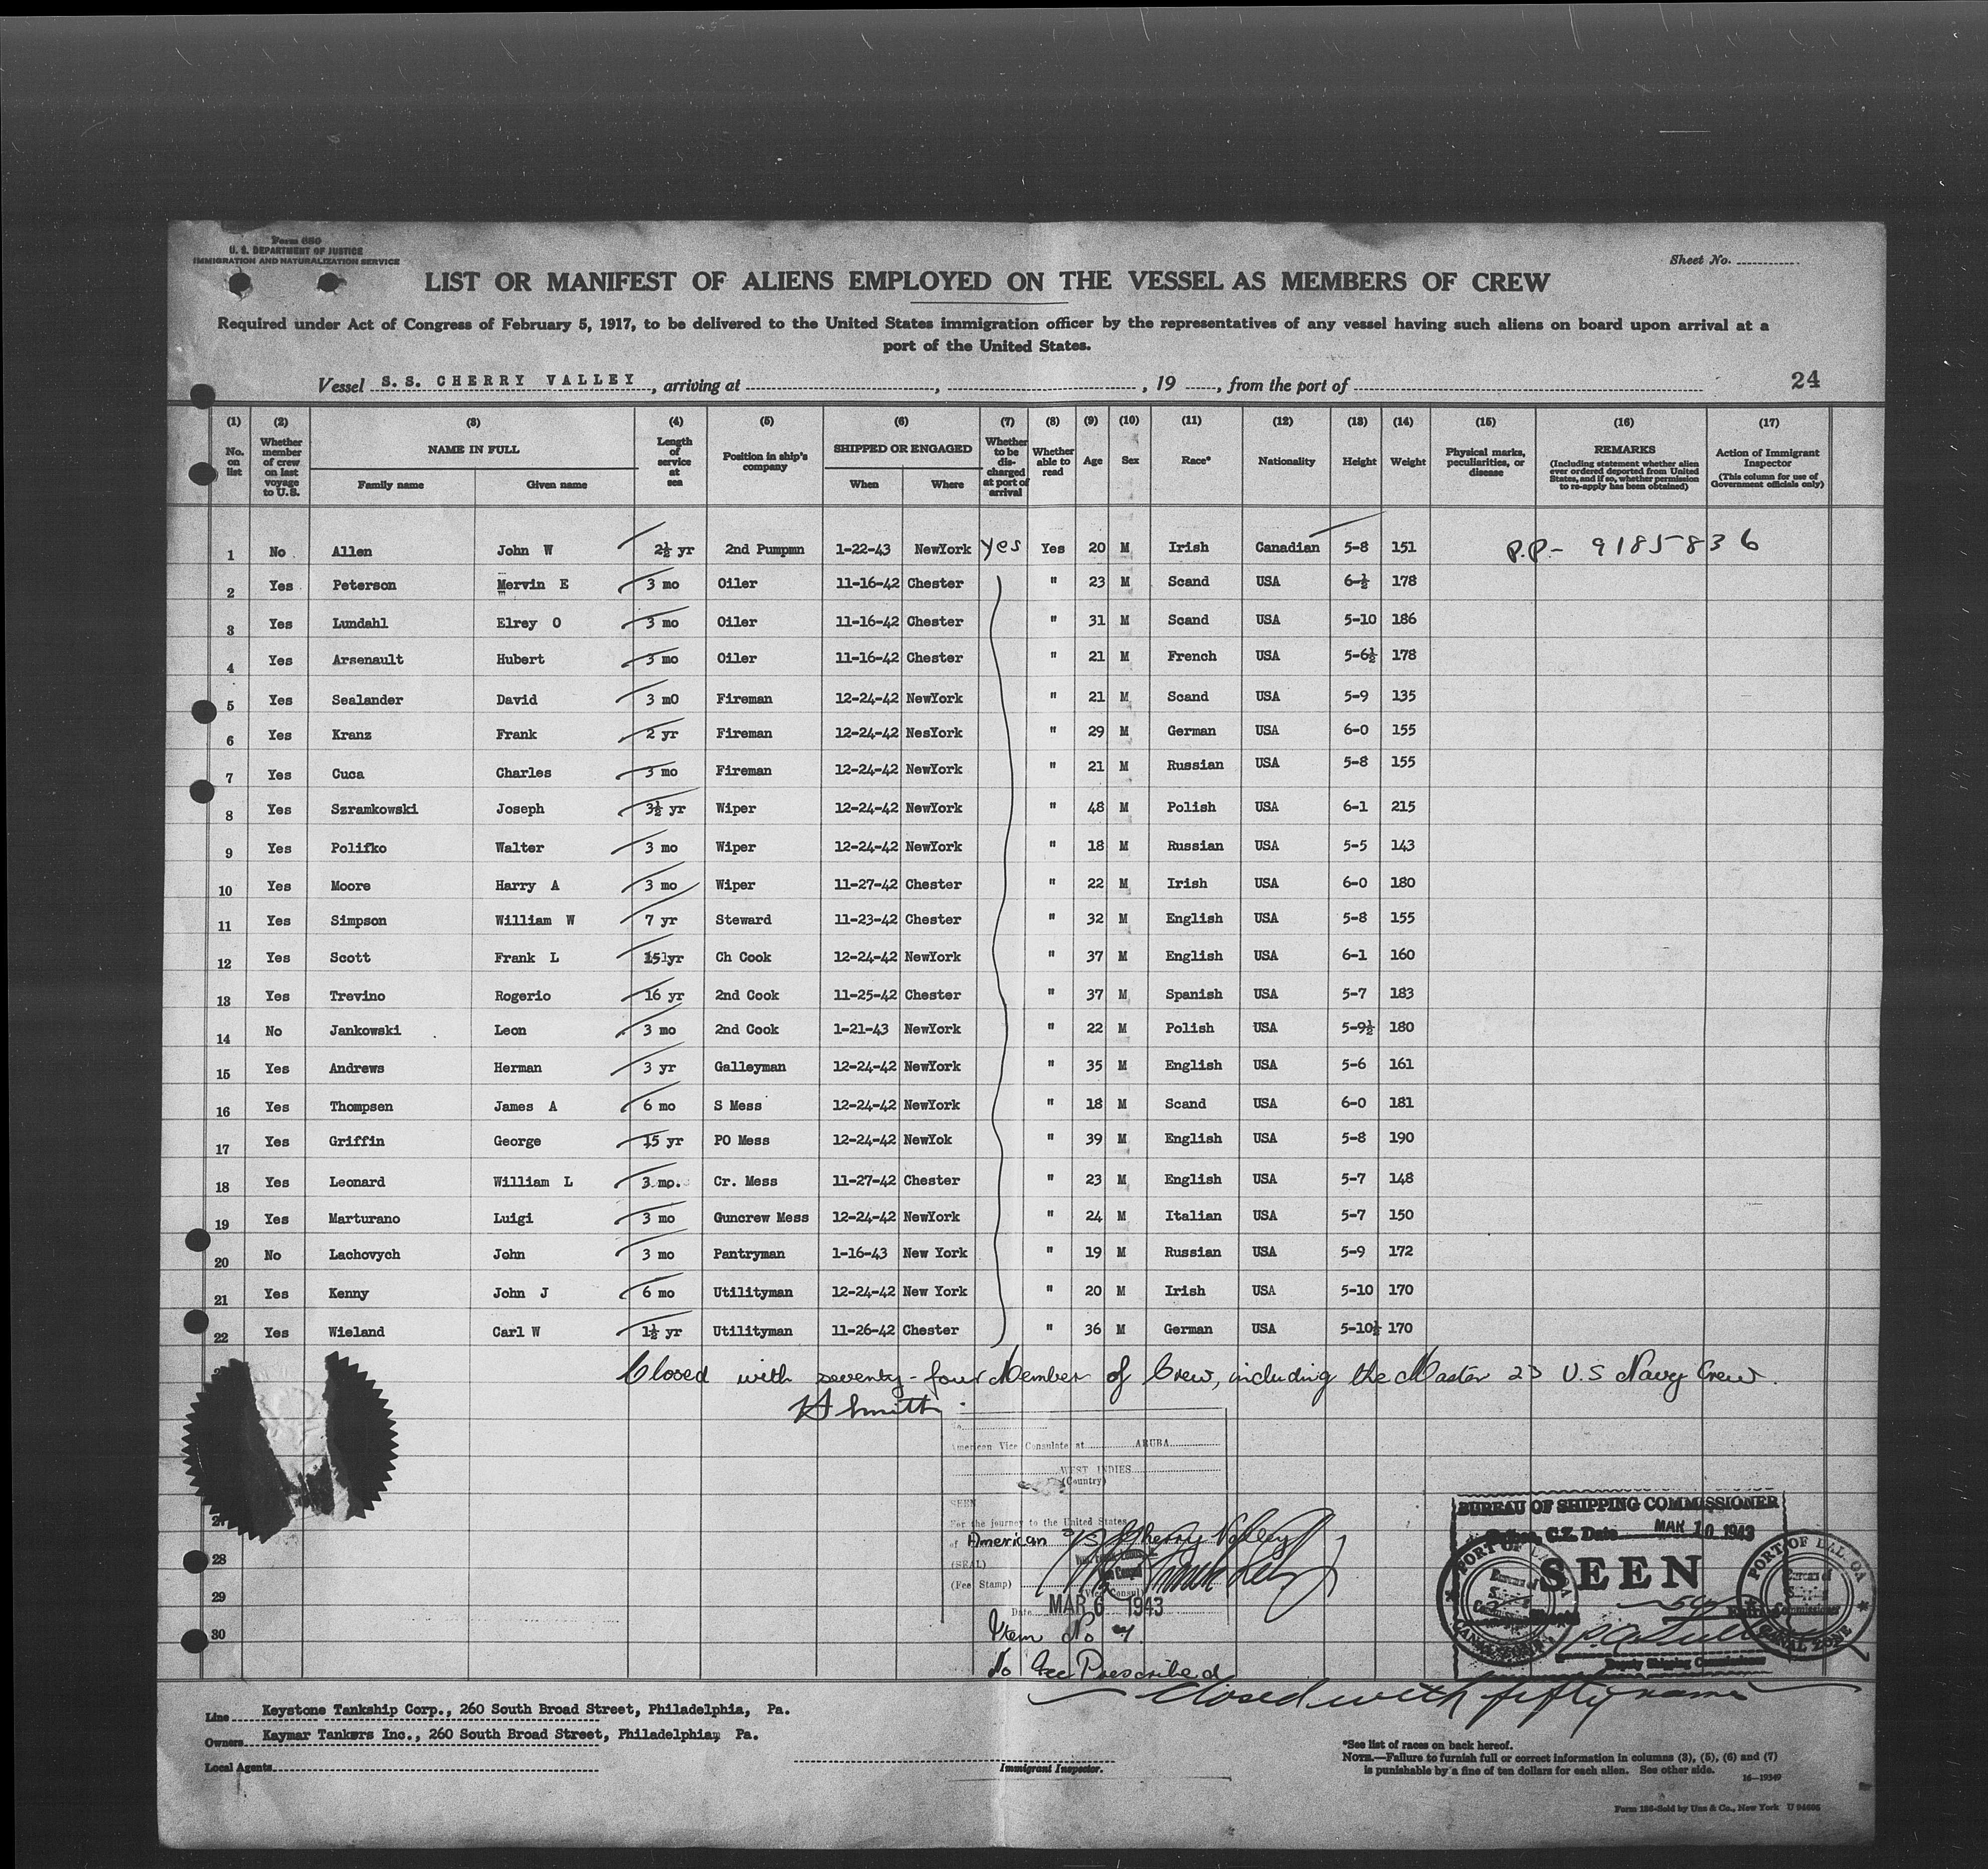 Form 680
U. S. DEPARTMENT OF JUSTICE
IMMIGRATION AND NATURALIZATION SERVICE
Sheet No.
LIST OR MANIFEST OF ALIENS EMPLOYED ON THE VESSEL AS MEMBERS OF CREW
Required under Act of Congress of February 5, 1917, to be delivered to the United States immigration officer by the representatives of any vessel having such aliens on board upon arrival at a
port of the United States.
Vessel S. S. CHERRY VALLEY, arriving at , , 19 , from the port of 24
(1) No. on list
(2) Whether member of crew on last voyage to U.S.
(3) NAME IN FULL Family name Given name
(4) Length of service at sea
(5) Position in ship's company
(6) SHIPPED OR ENGAGED When Where
(7) Whether to be discharged at port of arrival
(8) Whether able to read
(9) Age
(10) Sex
(11) Race*
(12) Nationality
(13) Height
(14) Weight
(15) Physical marks, peculiarities, or disease
(16) REMARKS (Including statement whether alien ever ordered deported from United States, and if so, whether permission to re-apply has been obtained)
(17) Action of Immigrant Inspector (This column for use of Government officials only)
1 No Allen John W 2½ yr 2nd Pumpmn 1-22-43 NewYork yes Yes 20 M Irish Canadian 5-8 151 P.P- 9185836
2 Yes Peterson Mervin E 3 mo Oiler 11-16-42 Chester " 23 M Scand USA 6-½ 178
3 Yes Lundahl Elrey O 3 mo Oiler 11-16-42 Chester " 31 M Scand USA 5-10 186
4 Yes Arsenault Hubert 3 mo Oiler 11-16-42 Chester " 21 M French USA 5-6½ 178
5 Yes Sealander David 3 m0 Fireman 12-24-42 NewYork " 21 M Scand USA 5-9 135
6 Yes Kranz Frank 2 yr Fireman 12-24-42 NesYork " 29 M German USA 6-0 155
7 Yes Cuca Charles 3 mo Fireman 12-24-42 NewYork " 21 M Russian USA 5-8 155
8 Yes Szramkowski Joseph 3½ yr Wiper 12-24-42 NewYork " 48 M Polish USA 6-1 215
9 Yes Polifko Walter 3 mo Wiper 12-24-42 NewYork " 18 M Russian USA 5-5 143
10 Yes Moore Harry A 3 mo Wiper 11-27-42 Chester " 22 M Irish USA 6-0 180
11 Yes Simpson William W 7 yr Steward 11-23-42 Chester " 32 M English USA 5-8 155
12 Yes Scott Frank L yr Ch Cook 12-24-42 NewYork " 37 M English USA 6-1 160
13 Yes Trevino Rogerio 16 yr 2nd Cook 11-25-42 Chester " 37 M Spanish USA 5-7 183
14 No Jankowski Leon 3 mo 2nd Cook 1-21-43 NewYork " 22 M Polish USA 5-9½ 180
15 Yes Andrews Herman 3 yr Galleyman 12-24-42 NewYork " 35 M English USA 5-6 161
16 Yes Thompsen James A 6 mo S Mess 12-24-42 NewYork " 18 M Scand USA 6-0 181
17 Yes Griffin George 15 yr PO Mess 12-24-42 NewYok " 39 M English USA 5-8 190
18 Yes Leonard William L 3 mo. Cr. Mess 11-27-42 Chester " 23 M English USA 5-7 148
19 Yes Marturano Luigi 3 mo Guncrew Mess 12-24-42 NewYork " 24 M Italian USA 5-7 150
20 No Lachovych John 3 mo Pantryman 1-16-43 New York " 19 M Russian USA 5-9 172
21 Yes Kenny John J 6 mo Utilityman 12-24-42 New York " 20 M Irish USA 5-10 170
22 Yes Wieland Carl W 1½ yr Utilityman 11-26-42 Chester " 36 M German USA 5-10½ 170
Closed with seventy-four Member of Crew, including the Master 23 U.S Navy Crew.
Smith
American Vice Consulate at ARUBA
WEST INDIES
(Country)
SEEN
For the journey to the United States
of American S/S Cherry Valley
(SEAL)
(Fee Stamp)
(Vice Consul)
Date MAR 6 1943
Item No
No Fee Prescribed
27
28
29
30
BUREAU OF SHIPPING COMMISSIONER
C.Z. Date MAR 10 1943
SEEN
PORT OF BALBOA
Bureau of Shipping Commissioner
CANAL ZONE
Deputy Shipping Commissioner
closed with fifty names
Line Keystone Tankship Corp., 260 South Broad Street, Philadelphia, Pa.
Owners Kaymar Tankers Inc., 260 South Broad Street, Philadelphia, Pa.
Local Agents
Immigrant Inspector.
*See list of races on back hereof.
NOTE.—Failure to furnish full or correct information in columns (3), (5), (6) and (7)
is punishable by a fine of ten dollars for each alien. See other side.
16—19349
Form 180-Sold by Unz & Co., New York